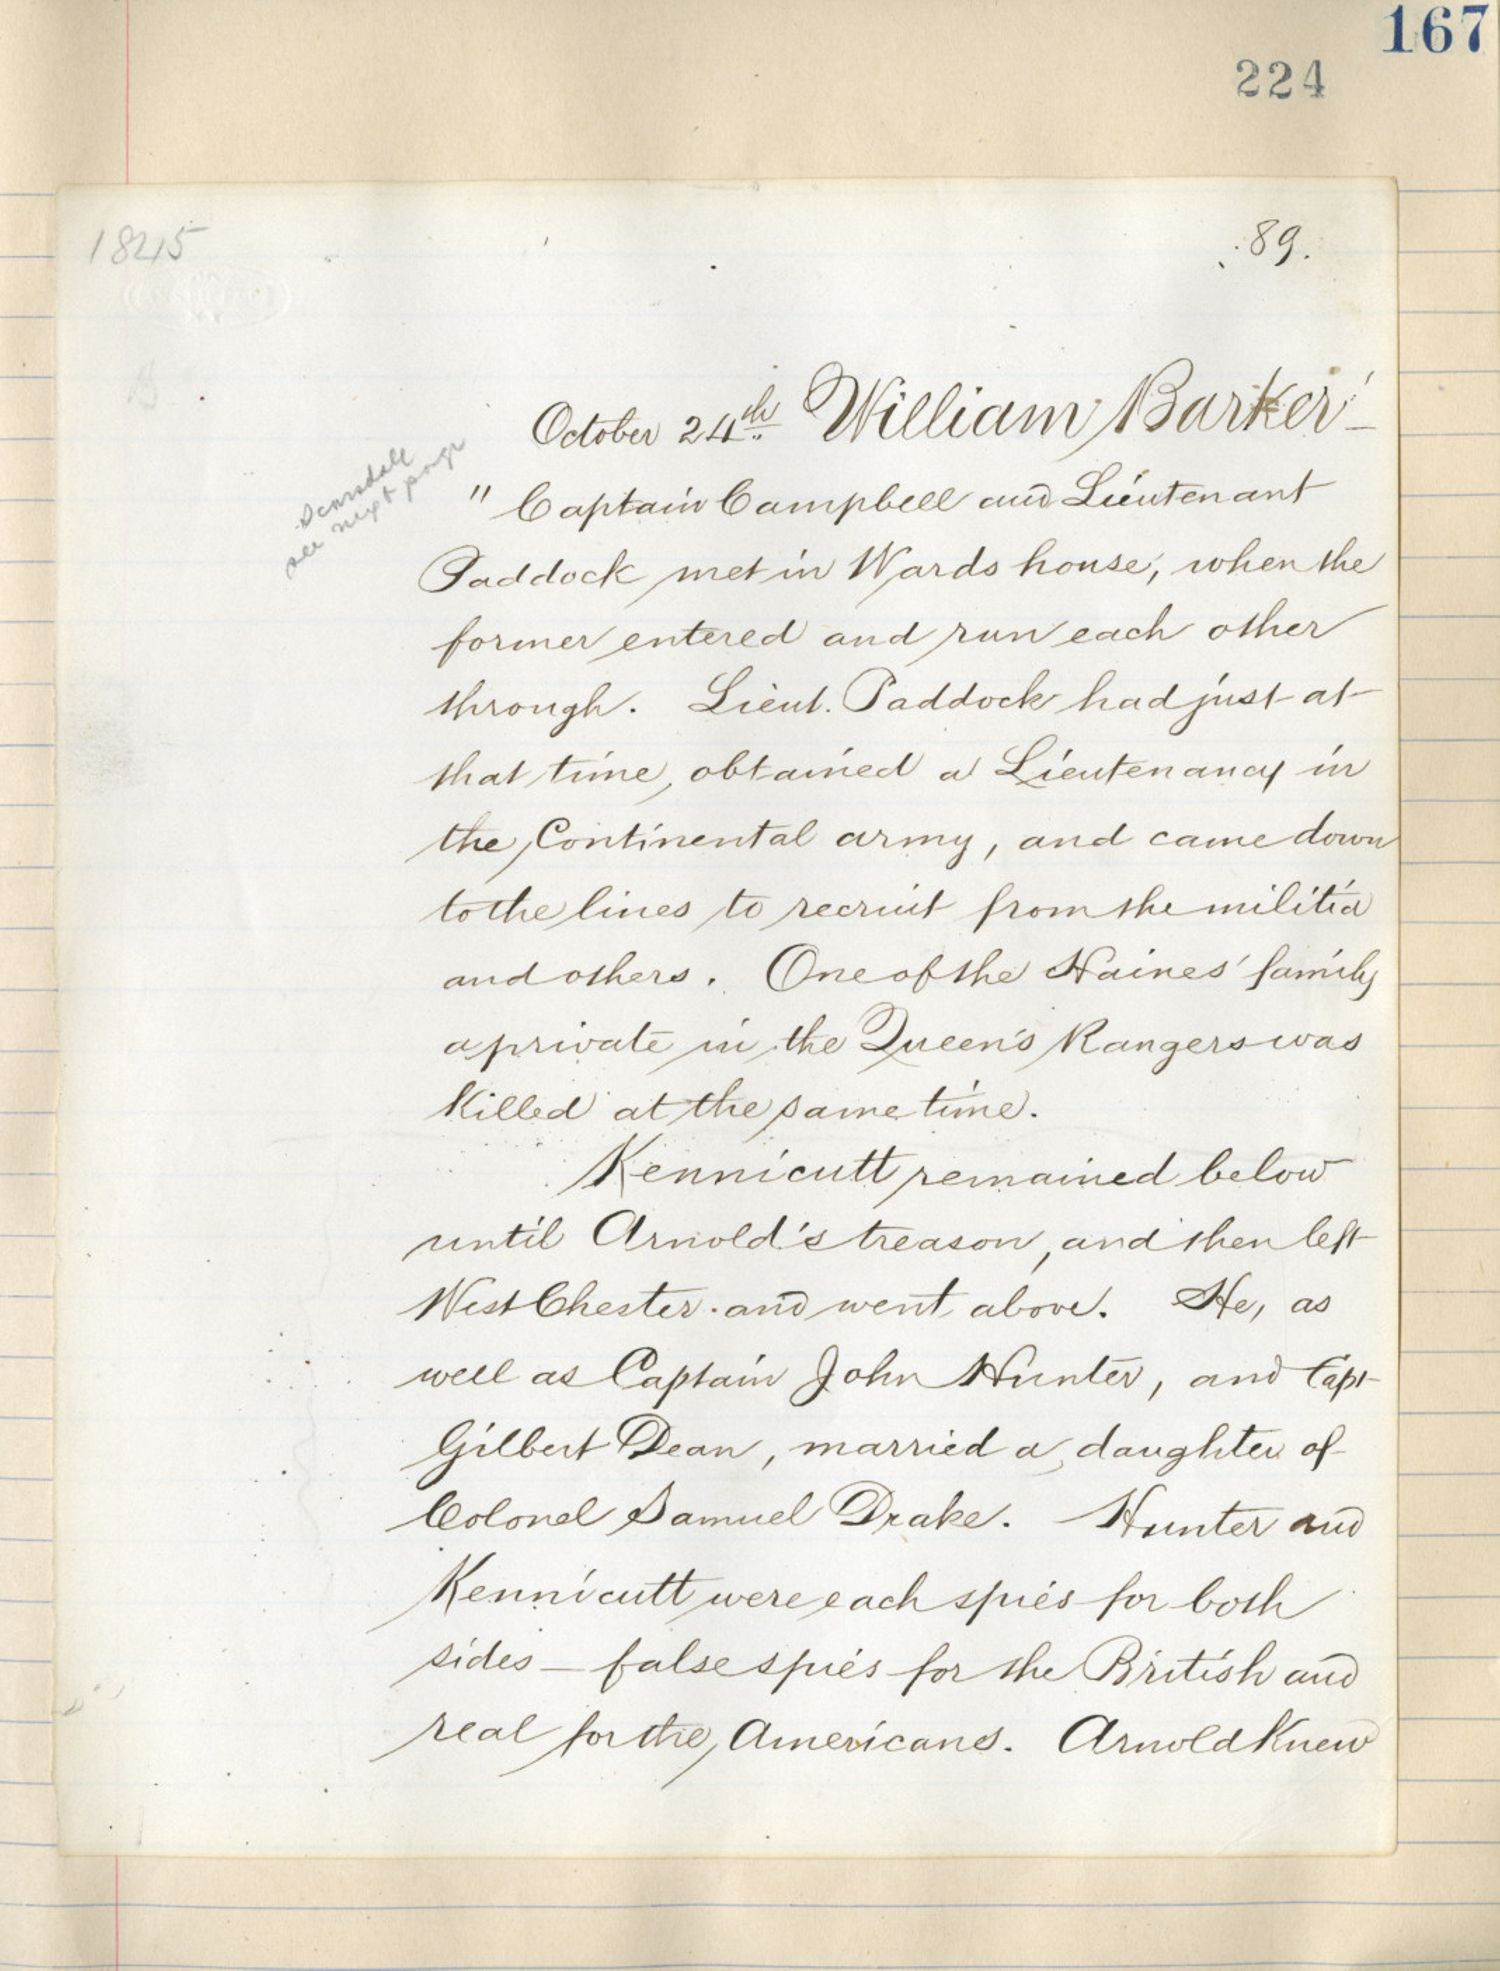 167
224
1845
89.
October 24th William Barker
Scarsdale
see next page
" Captain Campbell and Lieutenant
Paddock met in Wards house, when the
former entered and run each other
through. Lieut. Paddock had just at
that time, obtained a Lieutenancy in
the Continental army, and came down
to the lines to recruit from the militia
and others. One of the Haines' family
a private in the Queen's Rangers was
killed at the same time.
Kennicutt remained below
until Arnold's treason, and then left
WestChester and went above. He, as
well as Captain John Hunter, and Capt
Gilbert Dean, married a daughter of
Colonel Samuel Drake. Hunter and
Kennicutt were each spies for both
sides — false spies for the British and
real for the Americans. Arnold Knew